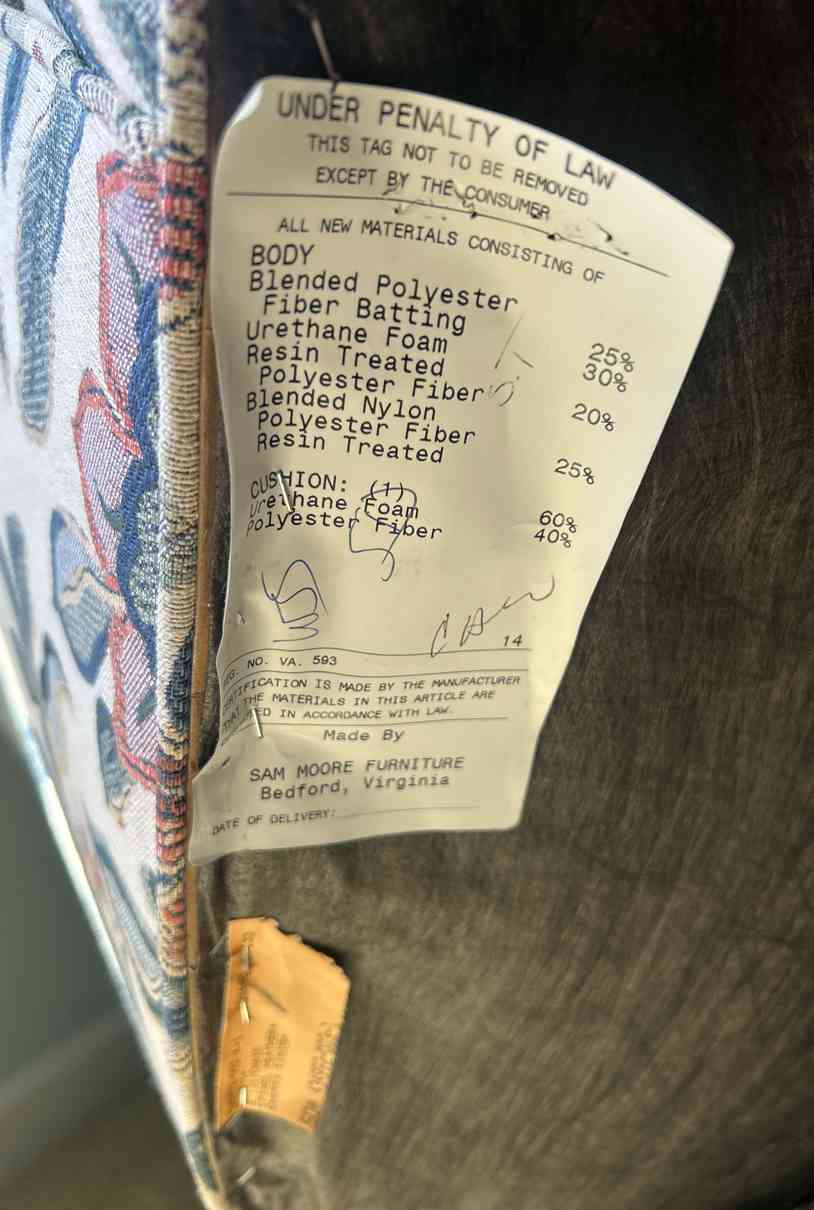 UNDER PENALTY OF LAW
THIS TAG NOT TO BE REMOVED
EXCEPT BY THE CONSUMER
ALL NEW MATERIALS CONSISTING OF
BODY
Blended Polyester
Fiber Batting 25%
Urethane Foam 30%
Resin Treated
Polyester Fiber 20%
Blended Nylon
Polyester Fiber
Resin Treated 25%
CUSHION: (1)
Urethane Foam 60%
Polyester Fiber 40%
14
REG. NO. VA. 593
CERTIFICATION IS MADE BY THE MANUFACTURER
THAT THE MATERIALS IN THIS ARTICLE ARE
IN ACCORDANCE WITH LAW.
Made By
SAM MOORE FURNITURE
Bedford, Virginia
DATE OF DELIVERY: